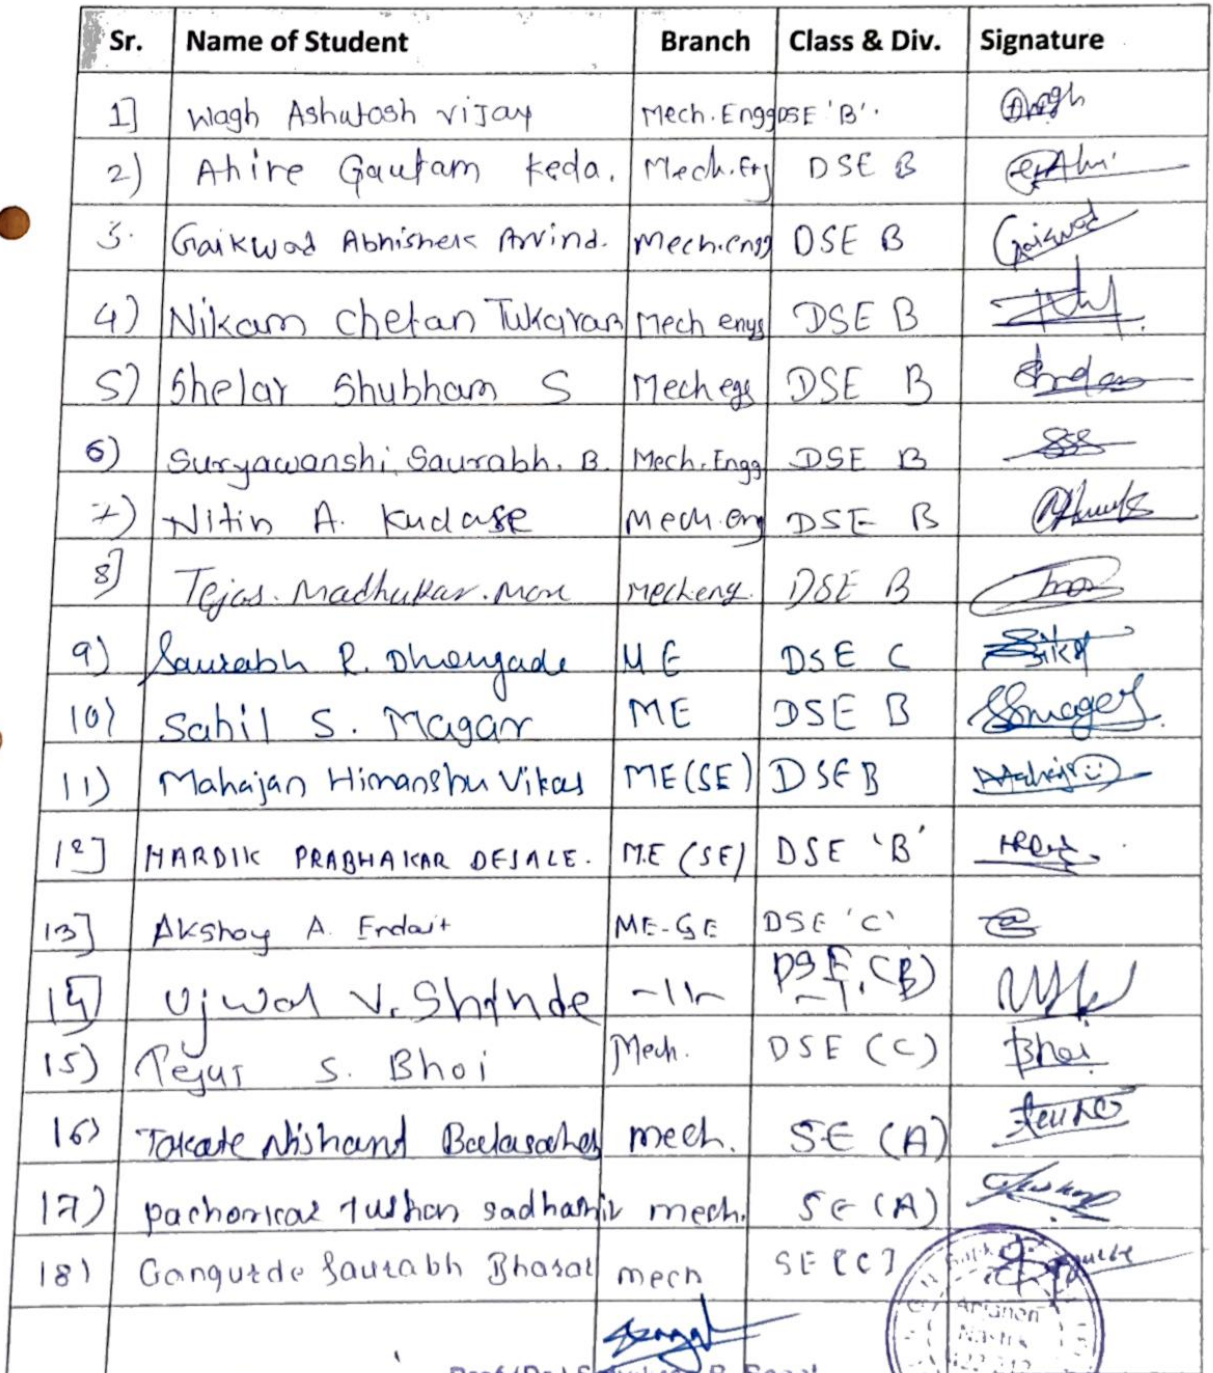 Sr. Name of Student Branch Class & Div. Signature
1] Wagh Ashutosh Vijay Mech.Engg DSE 'B'.
2) Ahire Gautam Keda. Mech.Eng DSE B
3. Gaikwad Abhishek Arvind. Mech.engg DSE B Gaikwad
4) Nikam Chetan Tukaram Mech engg DSE B
5) Shelar Shubham S Mech egg DSE B
6) Suryawanshi Saurabh. B. Mech.Engg DSE B
7) Nitin A. Kudase Mech.eng DSE B
8] Tejas. Madhukar. More Mecheng. DSE B
9) Saurabh R. Dhongade ME DSE C
10) Sahil S. Magar ME DSE B SSmagar
11) Mahajan Himanshu Vikas ME(SE) DSE B
12] HARDIK PRABHAKAR DESALE. M.E (SE) DSE 'B'
13] Akshay A. Endait ME-SE DSE 'C'
14] Ujwal V. Shinde -11- DSE (B)
15) Tejas S. Bhoi Mech. DSE (C) Bhoi
16) Takate Nishand Balasaheb mech. SE (A)
17) pachorkar Tushar sadhashiv mech. SE (A)
18) Gangurde Saurabh Bharat mech SE [C]